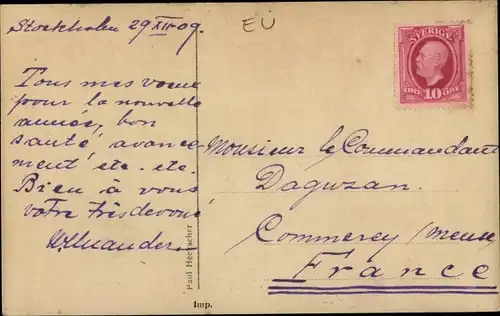 Stockholm 29 XII 09.
EU
Tous mes voeux
pour la nouvelle
année, bon
santé avance-
ment etc. etc.
Bien à vous
votre très devoué
SVERIGE
ÖRE 10 ÖRE
Monsieur le Commandant
Daguzan.
Commercy (Meuse
France
Paul Heckscher
Imp.